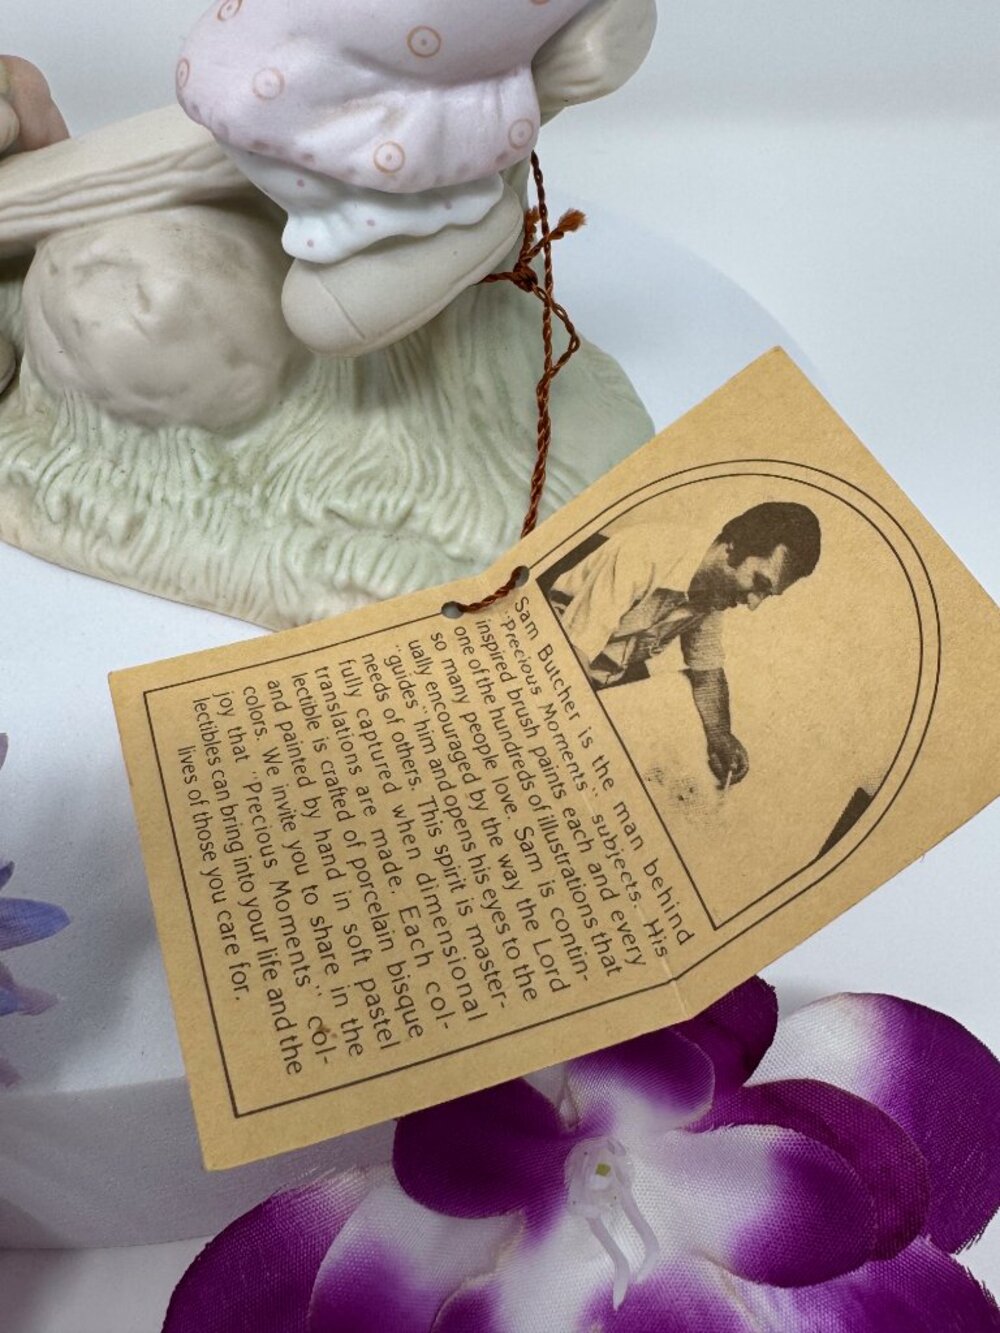 Sam Butcher is the man behind
"Precious Moments" subjects. His
inspired brush paints each and every
one of the hundreds of illustrations that
so many people love. Sam is contin-
ually encouraged by the way the Lord
"guides" him and opens his eyes to the
needs of others. This spirit is master-
fully captured when dimensional
translations are made. Each col-
lectible is crafted of porcelain bisque
and painted by hand in soft pastel
colors. We invite you to share in the
joy that "Precious Moments" col-
lectibles can bring into your life and the
lives of those you care for.